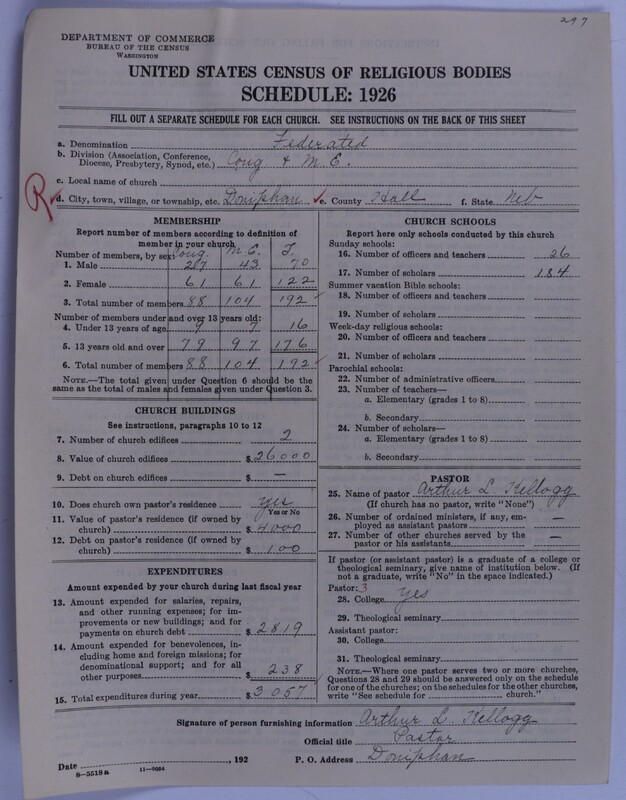 297
DEPARTMENT OF COMMERCE
BUREAU OF THE CENSUS
WASHINGTON
UNITED STATES CENSUS OF RELIGIOUS BODIES
SCHEDULE: 1926
FILL OUT A SEPARATE SCHEDULE FOR EACH CHURCH. SEE INSTRUCTIONS ON THE BACK OF THIS SHEET
a. Denomination Federated
b. Division (Association, Conference, Diocese, Presbytery, Synod, etc.) Cong & M. E.
c. Local name of church
R
d. City, town, village, or township, etc. Doniphan e. County Hall f. State Neb
MEMBERSHIP
Report number of members according to definition of
member in your church
Cong. M. E. T.
Number of members, by sex:
1. Male 27 43 70
2. Female 61 61 122
3. Total number of members 88 104 192
Number of members under and over 13 years old:
4. Under 13 years of age 9 7 16
5. 13 years old and over 79 97 176
6. Total number of members 88 104 192
NOTE.—The total given under Question 6 should be the
same as the total of males and females given under Question 3.
CHURCH BUILDINGS
See instructions, paragraphs 10 to 12
7. Number of church edifices 2
8. Value of church edifices $ 26000
9. Debt on church edifices $ —
10. Does church own pastor's residence yes
Yes or No
11. Value of pastor's residence (if owned by
church) $ 4000
12. Debt on pastor's residence (if owned by
church) $ 100
EXPENDITURES
Amount expended by your church during last fiscal year
13. Amount expended for salaries, repairs,
and other running expenses; for im-
provements or new buildings; and for
payments on church debt $ 2819
14. Amount expended for benevolences, in-
cluding home and foreign missions; for
denominational support; and for all
other purposes $ 238
15. Total expenditures during year $ 3057
CHURCH SCHOOLS
Report here only schools conducted by this church
Sunday schools:
16. Number of officers and teachers 26
17. Number of scholars 184
Summer vacation Bible schools:
18. Number of officers and teachers
19. Number of scholars
Week-day religious schools:
20. Number of officers and teachers
21. Number of scholars
Parochial schools:
22. Number of administrative officers
23. Number of teachers—
a. Elementary (grades 1 to 8)
b. Secondary
24. Number of scholars—
a. Elementary (grades 1 to 8)
b. Secondary
PASTOR
25. Name of pastor Arthur L. Kellogg
(If church has no pastor, write "None")
26. Number of ordained ministers, if any, em-
ployed as assistant pastors —
27. Number of other churches served by the
pastor or his assistants —
If pastor (or assistant pastor) is a graduate of a college or
theological seminary, give name of institution below. (If
not a graduate, write "No" in the space indicated.)
Pastor: 3
28. College yes
29. Theological seminary
Assistant pastor:
30. College
31. Theological seminary
NOTE.—Where one pastor serves two or more churches,
Questions 28 and 29 should be answered only on the schedule
for one of the churches; on the schedules for the other churches,
write "See schedule for church."
Signature of person furnishing information Arthur L. Kellogg
Official title Pastor
Date , 192 P. O. Address Doniphan
8-5518a 11-9054